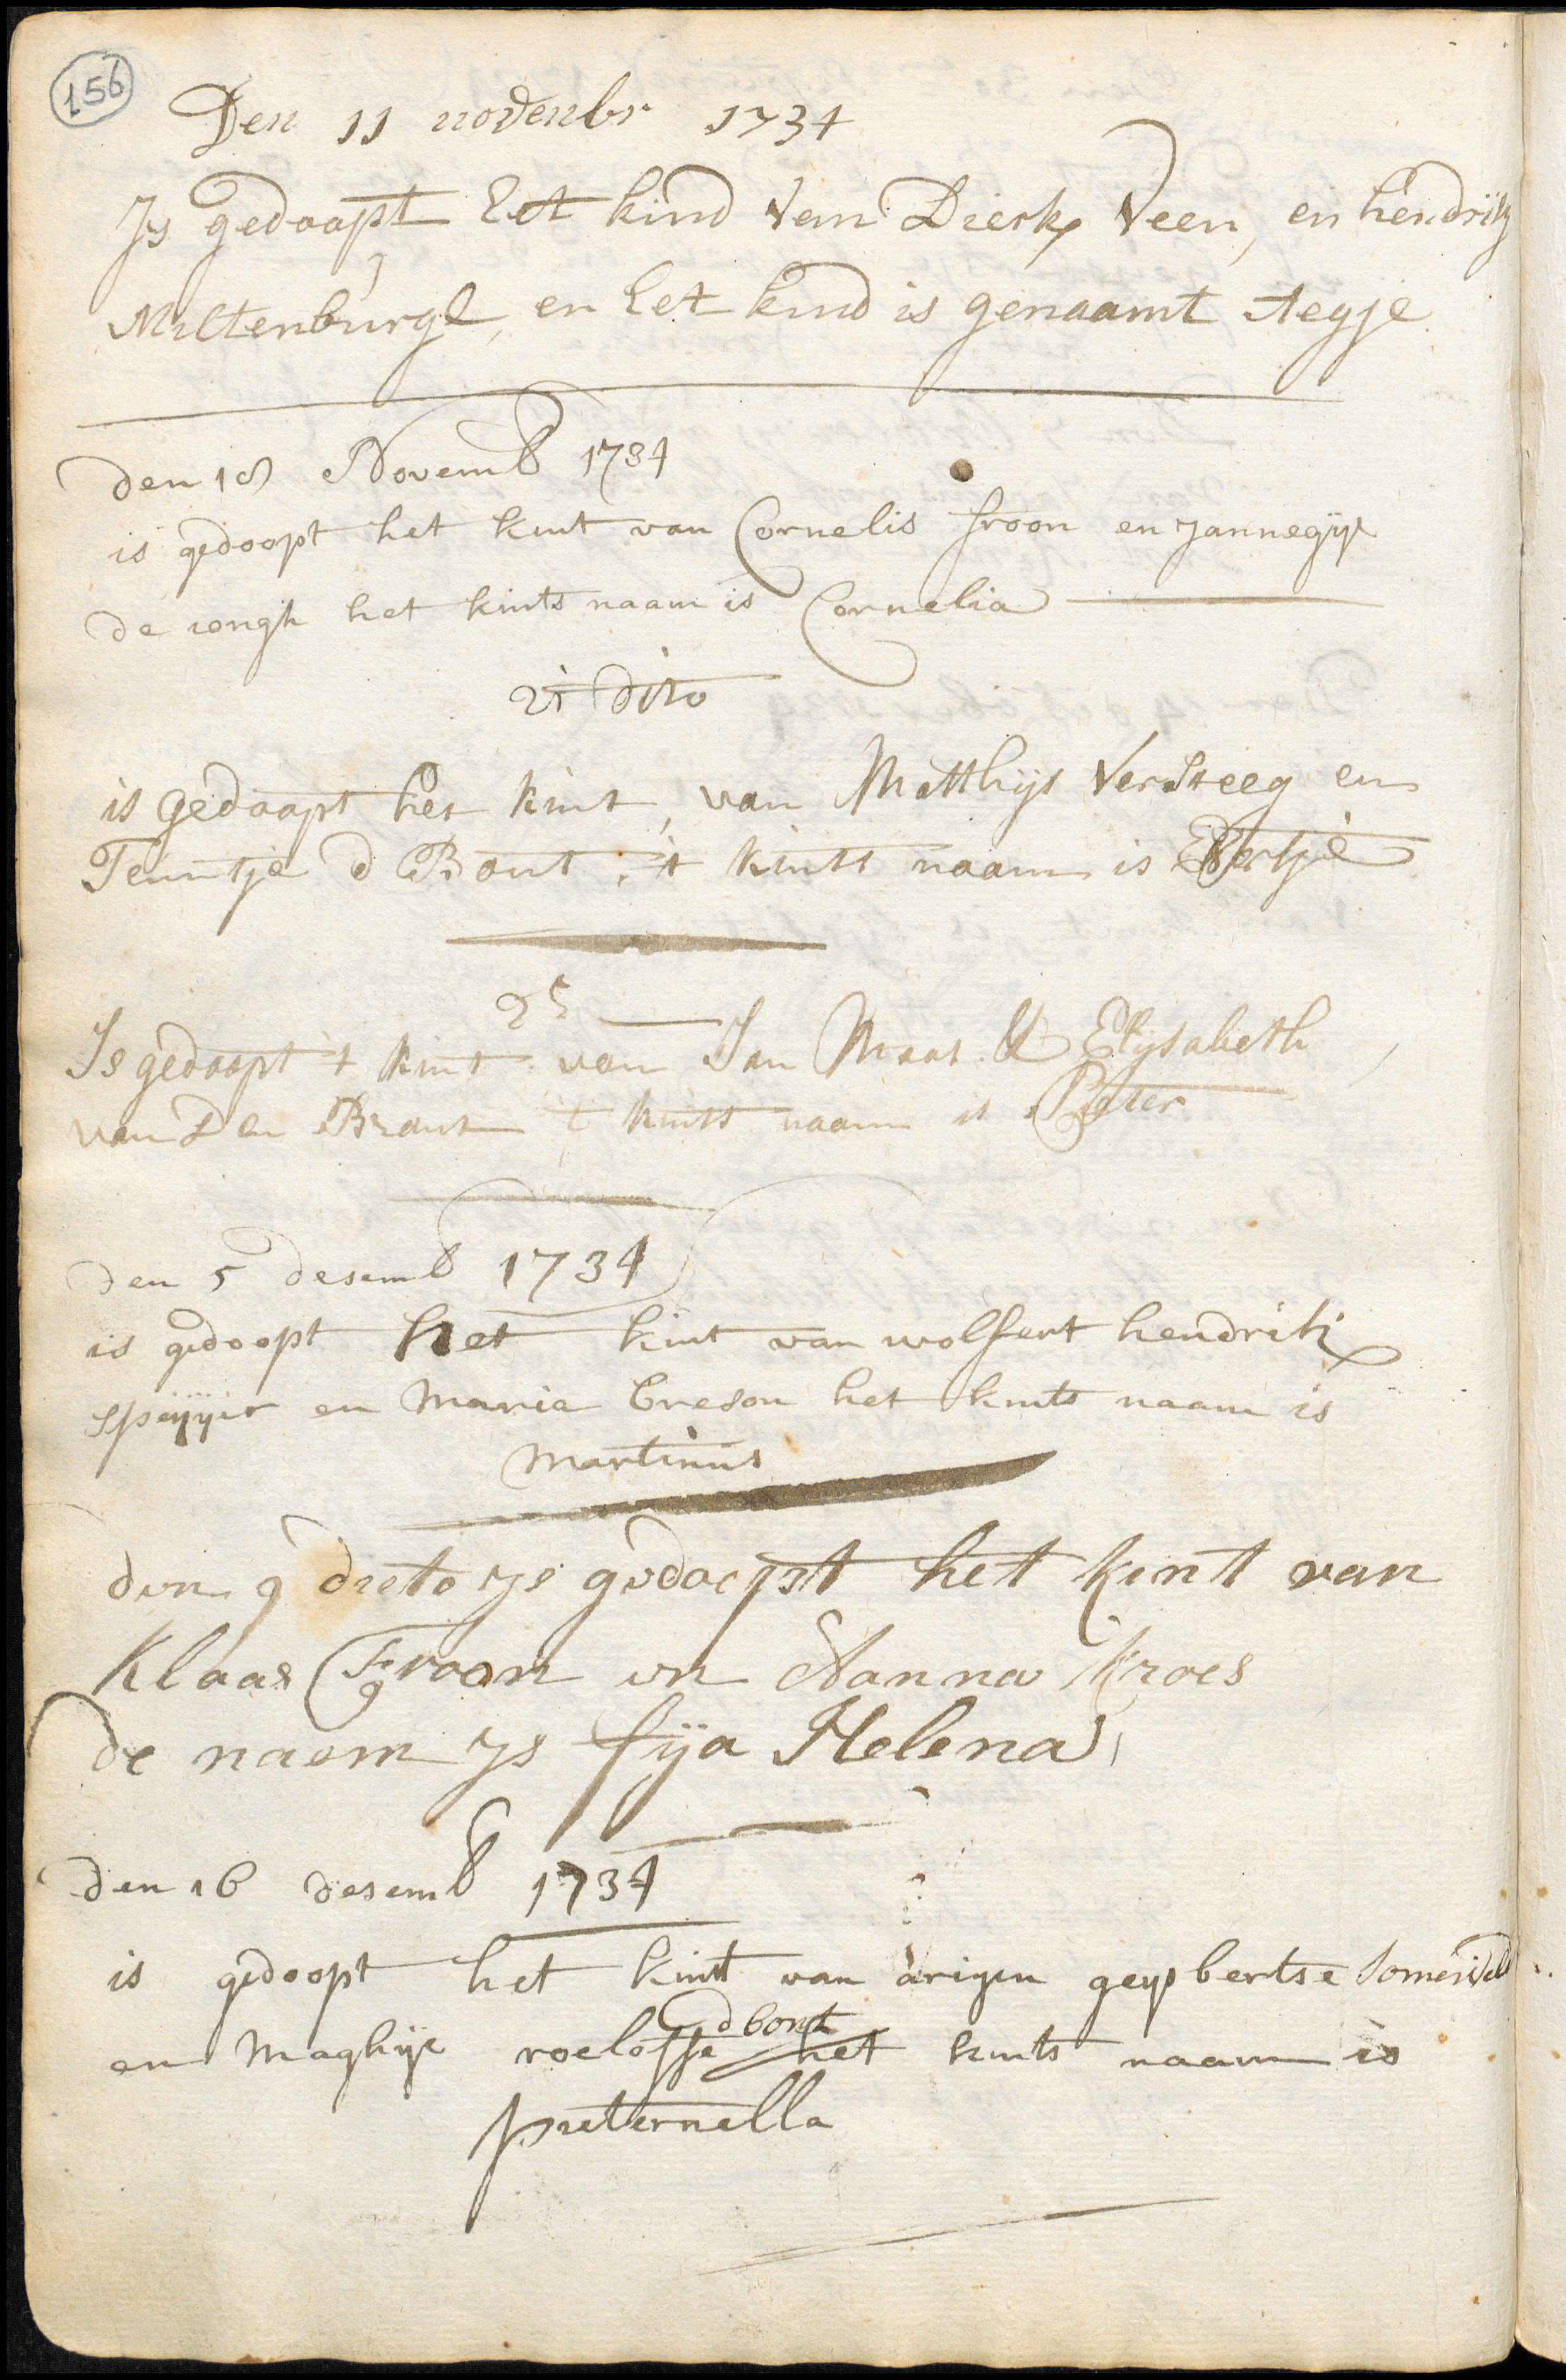 156
Den 11 novenbr 1734
Js gedoopt het kind van Dierk Veen, en hendrik
Miltenburgh, en het kind is genaamt Aegje
den 18 Novemb 1734
is gedoopt het kint van Cornelis froon en Jannegije
de iongh het kints naam is Cornelia
21 dito
is gedoopt het kint, van Matthijs Versteeg en
Teuntje d Bout. 't kints naam is Evertje
25
Is gedoopt 't kint van Jan Maas & Elijsabeth
van den Brant 't kints naam is Peter
den 5 desemb 1734
is gedoopt het kint van wolfert hendrik
speijjer en Maria Creson het kints naam is
Martinus
den 9 dieto ys gedoept het kint van
Klaas Froon en Aanna kroes
de naem ys fija Helena
den 16 desemb 1734
is gedoopt het kint van arigen geysbertse Somerveld
d bont
en Maghije roeloffse het kints naam is
pieternella